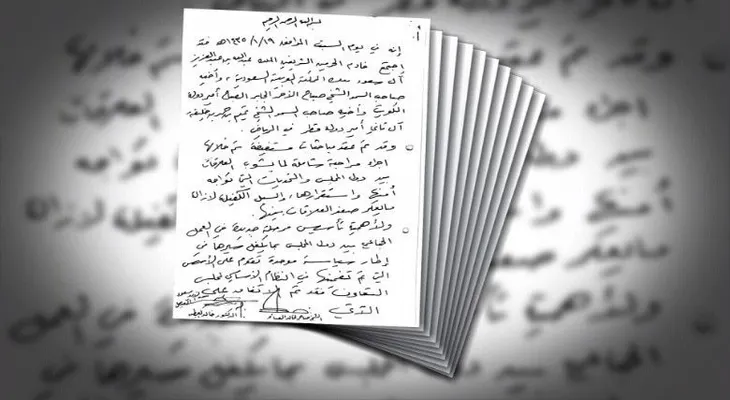 بسم الله الرحمن الرحيم
إنه في يوم السبت الموافق ١٤٣٥/١/١٩هـ فقد
اجتمع خادم الحرمين الشريفين الملك عبدالله بن عبدالعزيز
آل سعود ملك المملكة العربية السعودية وأخيه
صاحب السمو الشيخ صباح الأحمد الجابر الصباح أمير دولة
الكويت وأخيه صاحب السمو الشيخ تميم بن حمد بن خليفة
آل ثاني أمير دولة قطر في الرياض.
وقد تم عقد مباحثات مستفيضة تم خلالها
اجراء مراجعة شاملة لما يشوب العلاقات
بين دول المجلس والتحديات التي تواجه
أمنها واستقرارها، والسبل الكفيلة لإزالة
ما يعكر صفو العلاقات بينها.
ولأهمية تأسيس مرحلة جديدة في العمل
الجماعي بين دول المجلس بما يكفل سيرها في
إطار سياسة موحدة تقوم على الأسس
التي تم تضمينها في النظام الأساسي لمجلس
التعاون فقد تم الاتفاق على
التدي